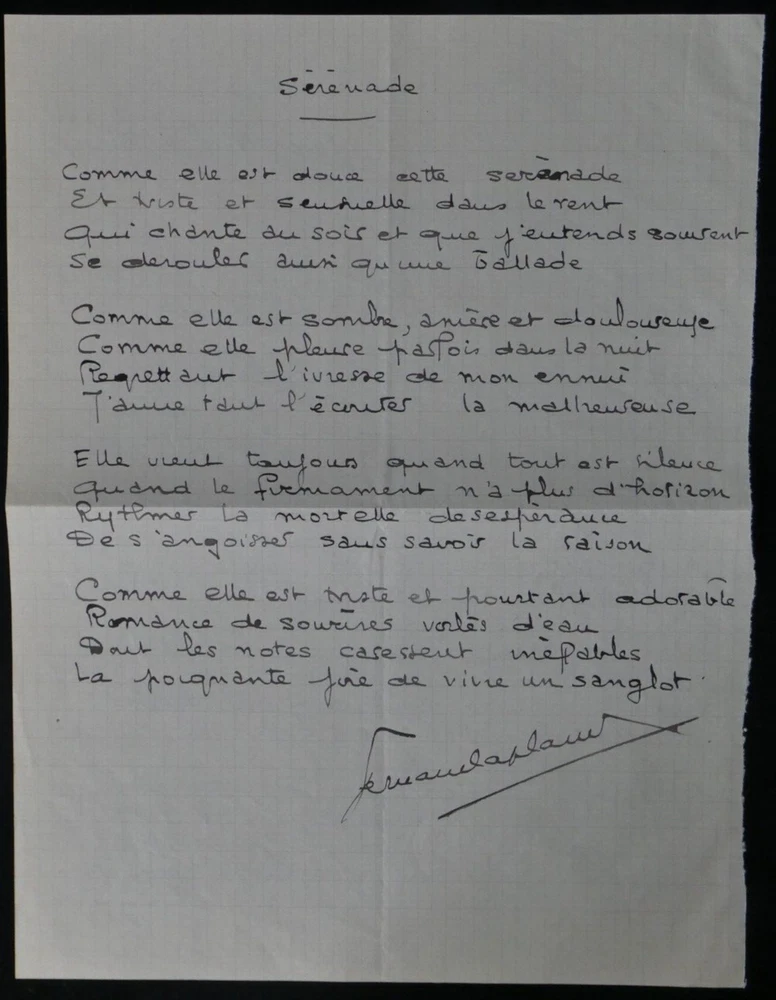 Sérénade
Comme elle est douce cette serénade
Et triste et sensuelle dans le vent
Qui chante au soir et que j'entends souvent
Se derouler ainsi qu'une ballade
Comme elle est sombre, amère et douloureuse
Comme elle pleure parfois dans la nuit
Regrettant l'ivresse de mon ennui
J'aime tant l'écouter la malheureuse
Elle vient toujours quand tout est silence
Quand le firmament n'a plus d'horizon
Rythmer la mortelle desespérance
De s'angoisser sans savoir la raison
Comme elle est triste et pourtant adorable
Romance de sourires voilés d'eau
Dont les notes caressent inéffables
La poignante joie de vivre un sanglot.